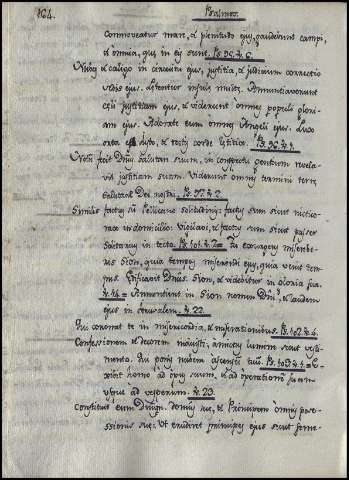 164. Psalmos.
Commoveatur mare, et plenitudo ejus, gaudebunt campi,
et omnia, quæ in eis sunt. Ps. 95. v. 6.
Nubes et caligo in circuitu ejus, justitia, et judicium correctio
sedis ejus. Lætentur insulæ multæ. Annuntiaverunt
cæli justitiam ejus, et viderunt omnes populi glori-
am ejus. Adorate eum omnes Angeli ejus. Lux
orta est justo, et rectis corde lætitia. Ps. 96. v. 1.
Notum fecit Dñus Salutare suum, in conspectu gentium revela-
vit justitiam suam. Viderunt omnes termini terræ
salutare Dei nostri. Ps. 97. v. 2.
Similis factus sum Pellicano solitudinis: factus sum sicut nictico-
rax in domicilio. Vigilavi, et factus sum sicut passer
solitarius in tecto. Ps. 101. v. 7. = Tu exurgens misereberis
Sion, quia tempus miserendi ejus, quia venit tem-
pus. Ædificavit Dñus. Sion, et videbitur in Gloria sua.
v. 14. = Annuntient in Sion nomen Dñi, et laudem
ejus in Jerusalem. v. 22.
Qui coronat te in misericordia, et miserationibus. Ps. 102. v. 4.
Confessionem, et decorem induisti, amictus lumine sicut vesti-
mento. Qui ponis nubem ascensum tuum. Ps. 103. v. 1. = Ex-
ibit homo ad opus suum, et ad operationem suam
usque ad vesperum. v. 23.
Constituit eum Dñum. domus suæ, et Principem omnis poses-
sionis suæ: Ut erudiret principes ejus sicut seme-